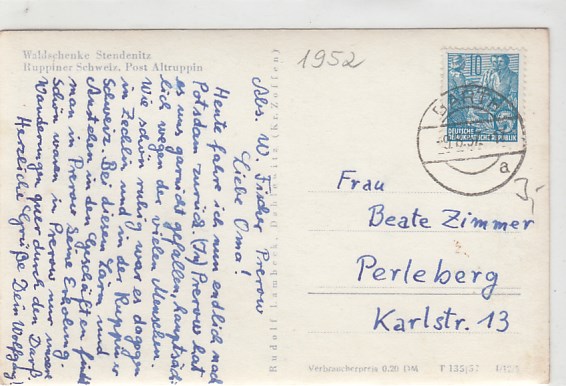 Waldschenke Stendenitz
Ruppiner Schweiz, Post Altruppin
1952
Abs. W. Fischer Prerow
Liebe Oma!
Heute fahre ich nun endlich nach
Potsdam zurück. Prerow hat
es uns garnicht gefallen, hauptsäch-
lich wegen der vielen Menschen.
Wie schön ruhig war es dagegen
in Zechlin und in der Ruppiner
Schweiz. Bei diesem Lärm und
Anstehen in den Geschäften findet
man in Prerow keine Erholung.
Schön waren in Prerow nur unsere
Wanderungen quer durch den Darß.
Herzliche Grüße Dein Wolfgang
Rudolf Lambeck, (Kr. Zossen)
10
DEUTSCHE
DEMOKRATISCHE REPUBLIK
a
3,-
Frau
Beate Zimmer
Perleberg
Karlstr. 13
Verbraucherpreis 0.20 DM
T 135/57